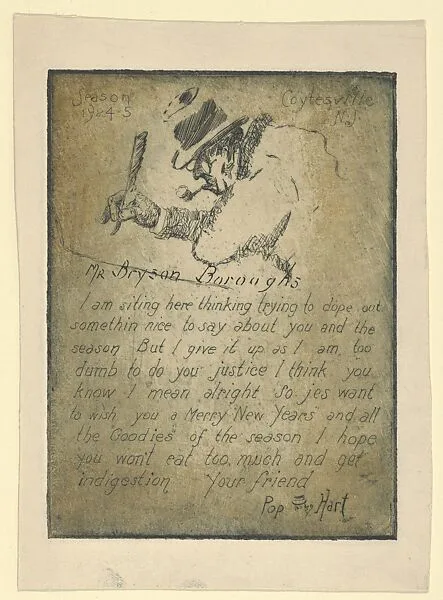 Season
1924-5
Coytesville
NJ
Mr Bryson Boroughs
I am siting here thinking trying to dope out
somethin nice to say about you and the
season But I give it up as I am too
dumb to do you justice I think you
know I mean alright So jes want
to wish you a Merry New Years and all
the Goodies of the season I hope
you won't eat too much and get
indigestion Your friend
Pop Hart